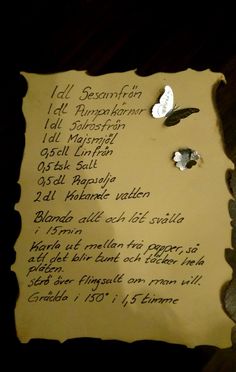 1dl Sesamfrön
1dl Pumpakärnor
1dl Solrosfrön
1dl Majsmjöl
0,5dl Linfrön
0,5tsk Salt
0,5dl Rapsolja
2dl Kokande vatten
Blanda allt och låt svälla
i 15min
Kavla ut mellan två papper, så
att det blir tunt och täcker hela
plåten.
strö över flingsalt om man vill.
Grädda i 150° i 1,5 timme